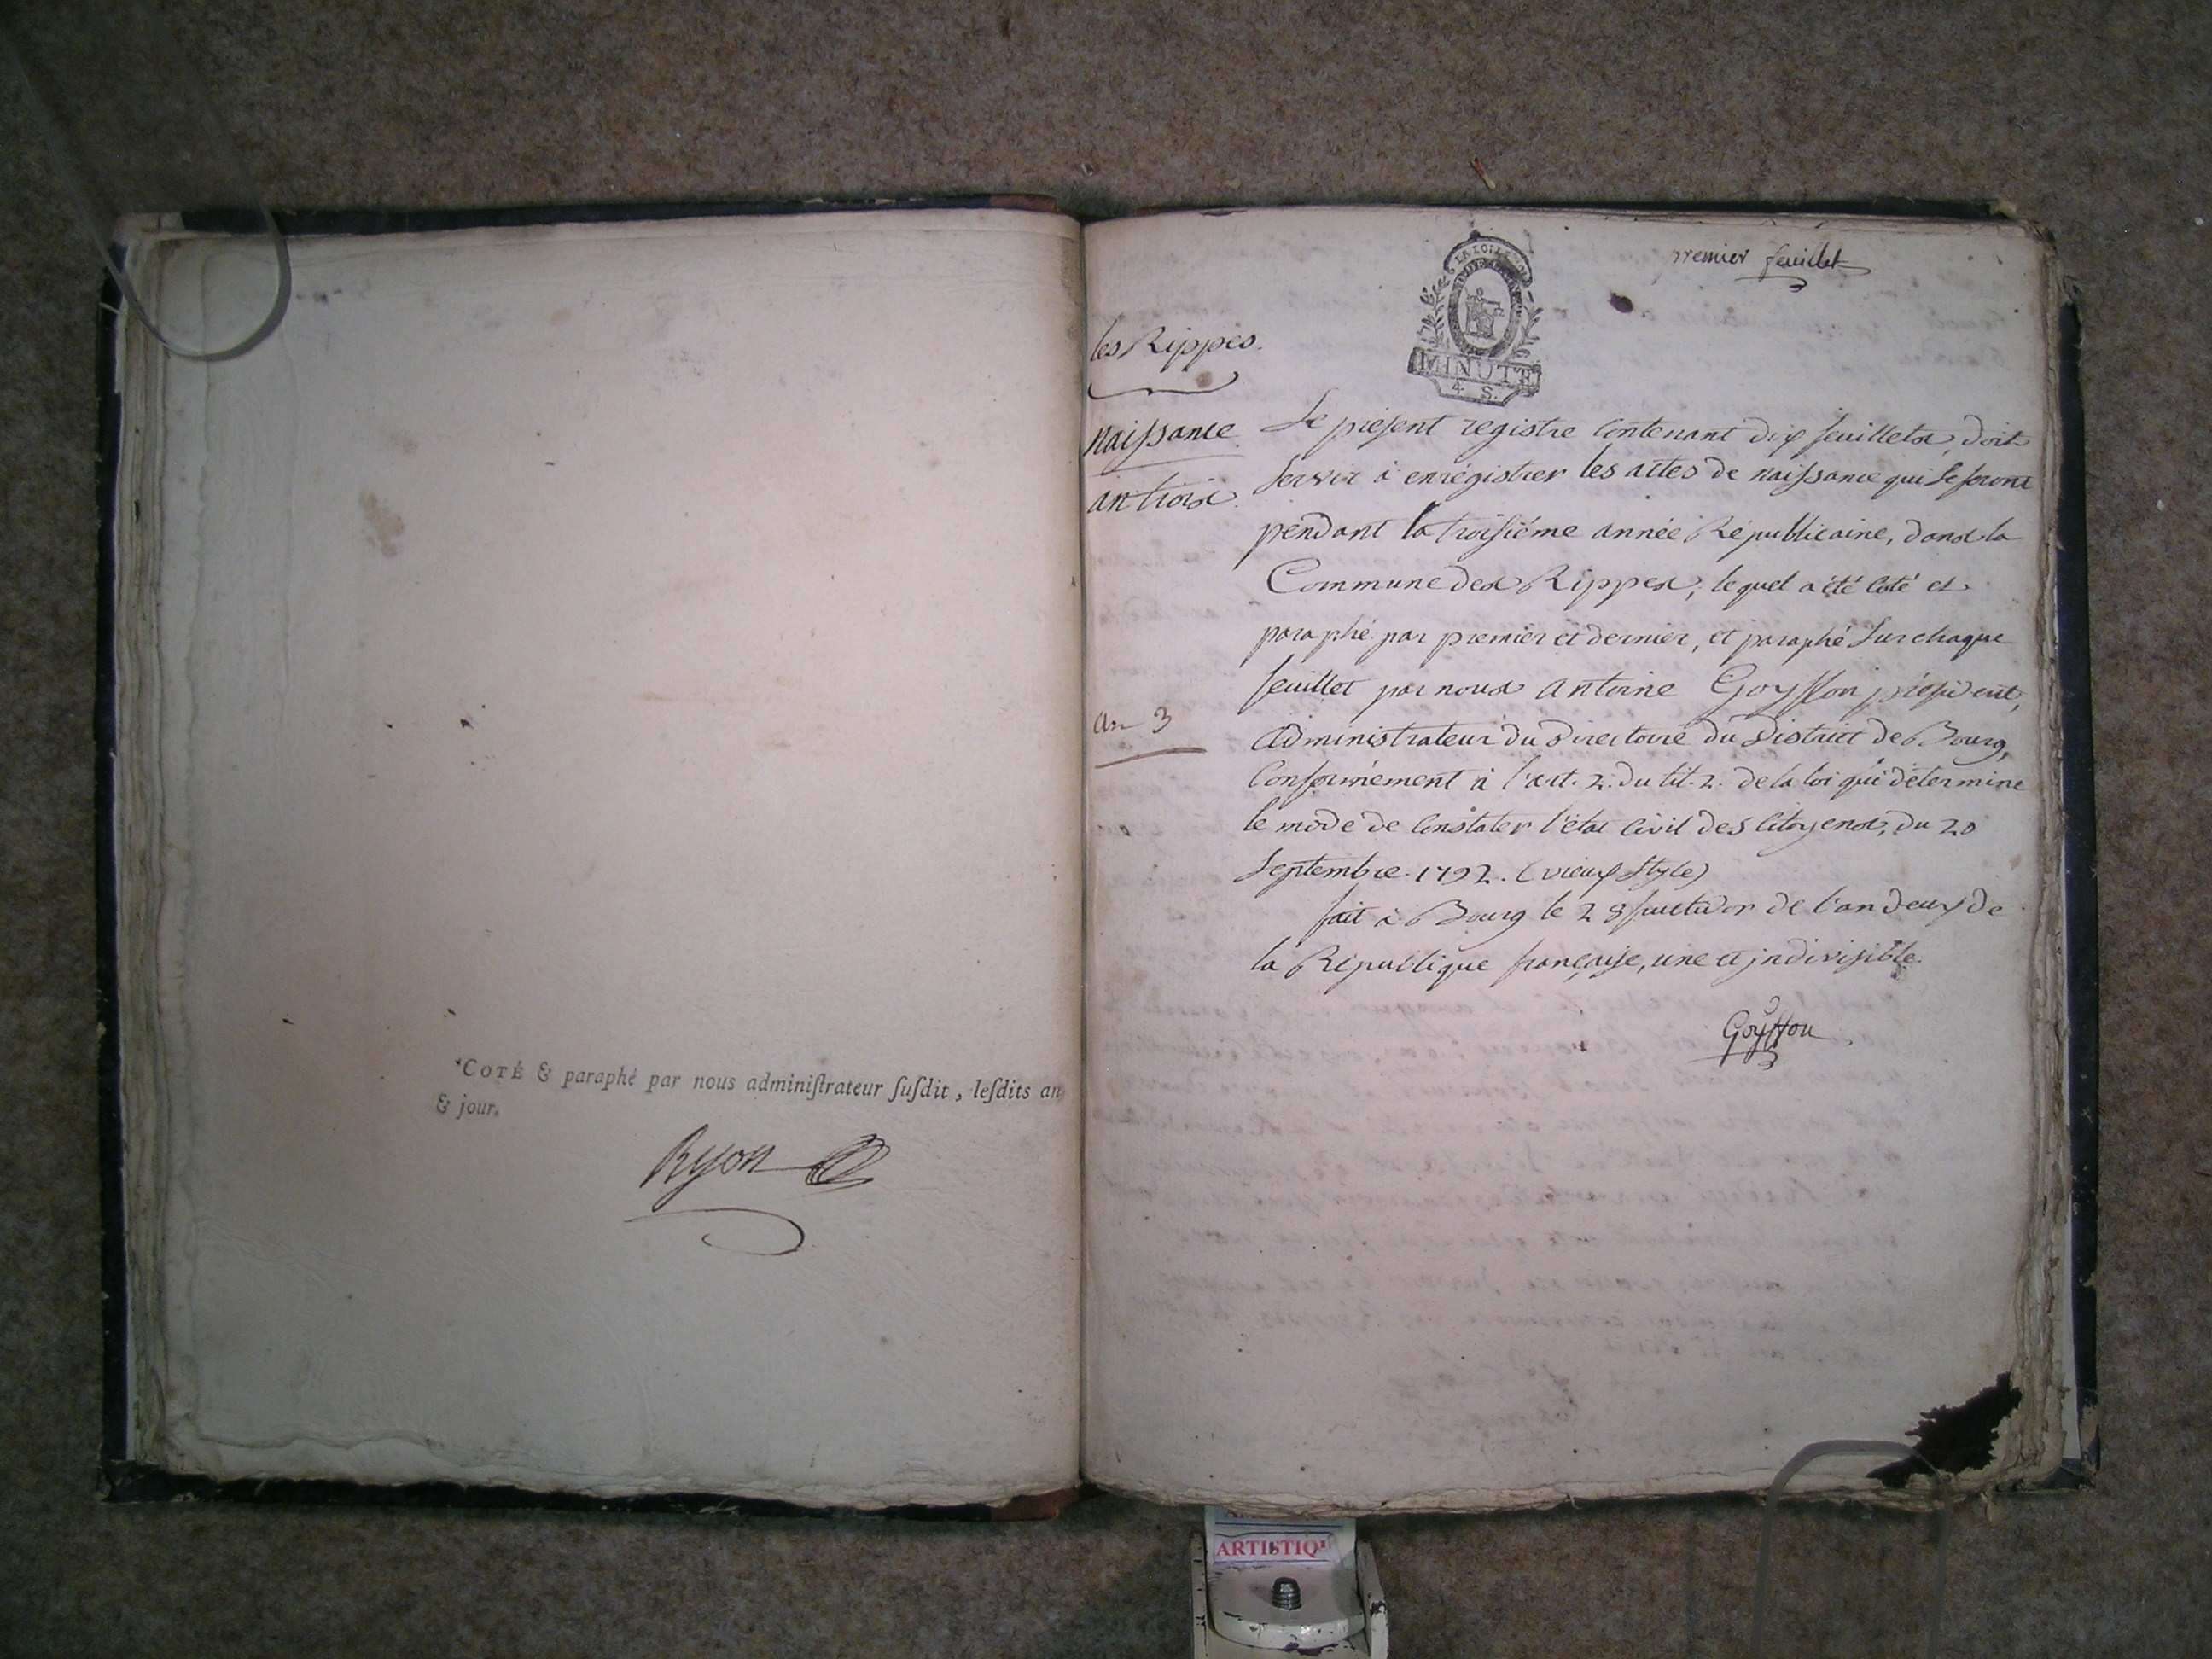 COTÉ & paraphé par nous adminiſtrateur ſuſdit, leſdits an
& jour.
Ryon
premier feuillet
LA LOI LE ROI
MINUTE
4 S.
les Rippes.
Naissance
an trois
An 3
Le présent registre contenant dix feuillets, doit
servir à enrégistrer les actes de naissance qui se feront
pendant la troisiéme année Républicaine, dans la
Commune des Rippes, lequel a été coté et
paraphé par premier et dernier, et paraphé sur chaque
feuillet par nous Antoine Goyffon président,
Administrateur du Directoire du District de Bourg,
Conformément à l'art. 2. du tit. 2. de la loi qui détermine
le mode de constater l'état civil des citoyens, du 20
Septembre 1792. (vieux style)
fait à Bourg le 28 fructidor de l'an deux de
la République française, une et indivisible.
Goyffon
ARTISTIQ